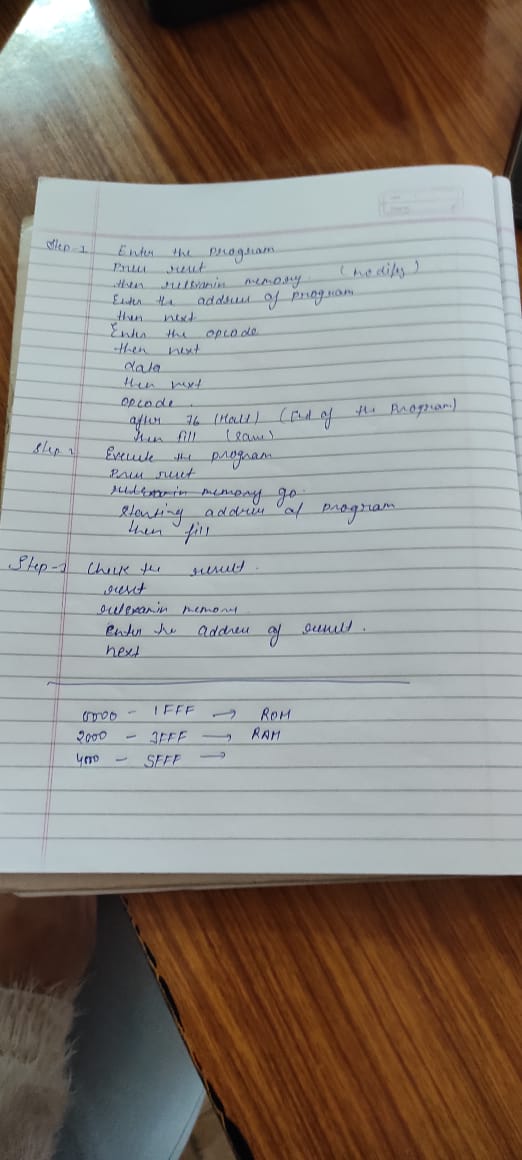 Step-1 Enter the program
Press reset
then rel examin memory (modify)
Enter the address of program
then next
Enter the opcode
then next
data
then next
opcode.
after 76 (Halt) (End of the Program)
then fill (save)
Step 2 Execute the program
Press reset
rel examin memory go
starting address of program
then fill
Step-3 Check the result.
reset
rel examin memory
enter the address of result.
next
0000 - 1FFF → ROM
2000 - 3FFF → RAM
4000 - 5FFF →